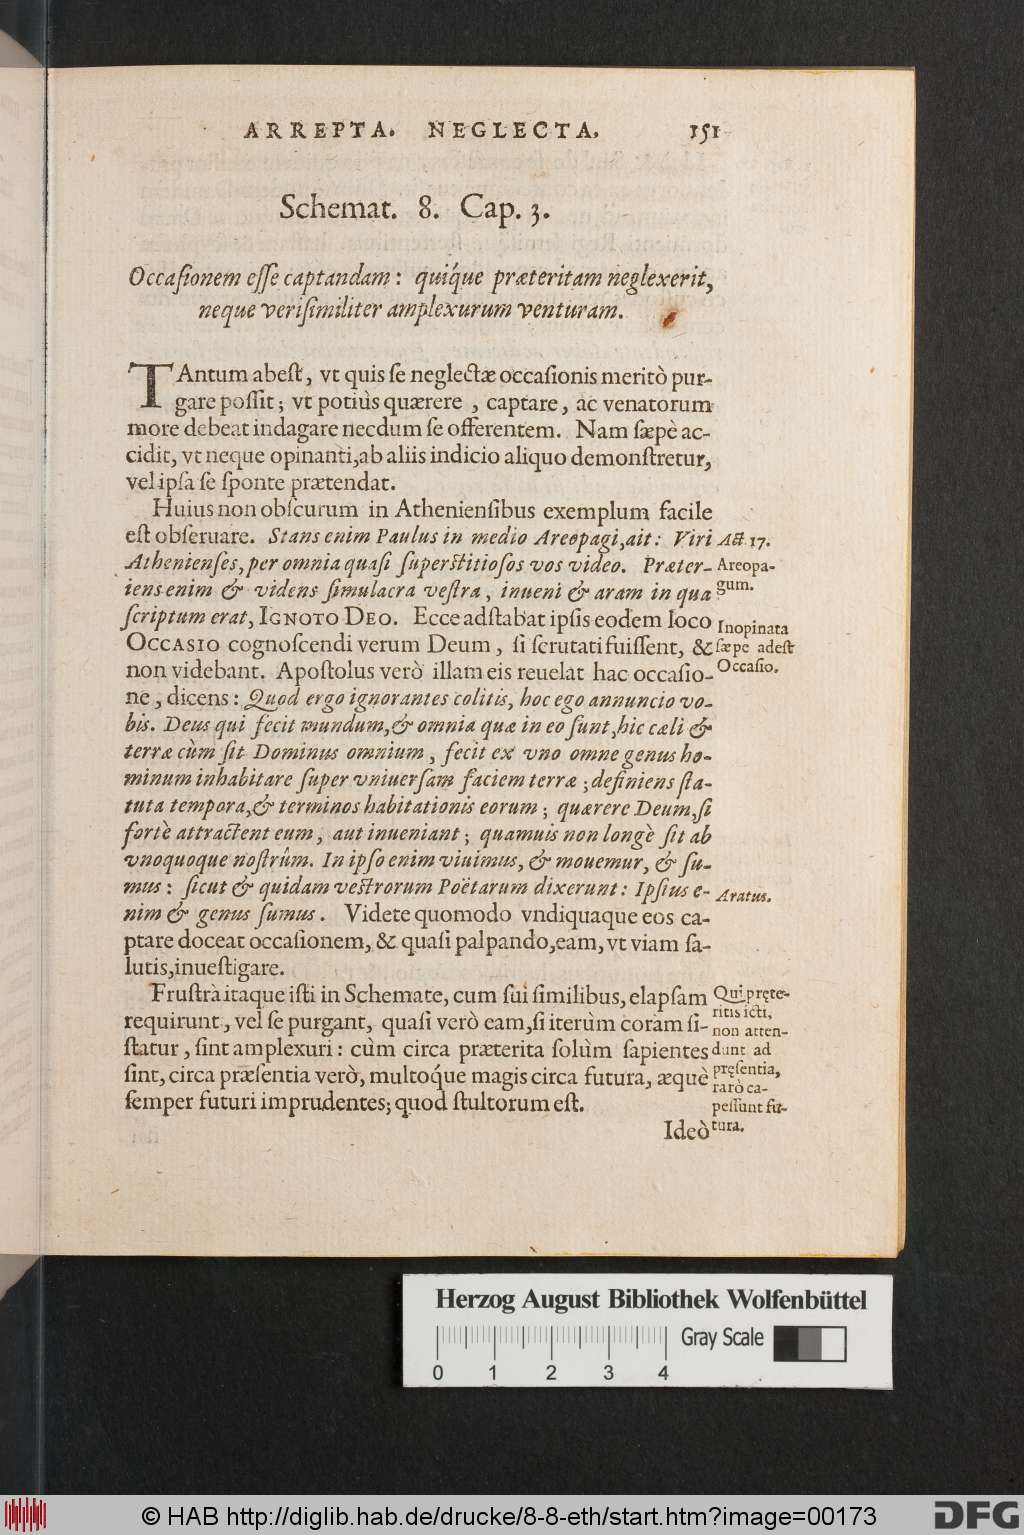 ARREPTA. NEGLECTA. 151
Schemat. 8. Cap. 3.
Occaſionem eſſe captandam: quíque præteritam neglexerit,
neque veriſimiliter amplexurum venturam.
TAntum abeſt, vt quis ſe neglectæ occaſionis meritò pur-
gare poſſit; vt potiùs quærere, captare, ac venatorum
more debeat indagare necdum ſe offerentem. Nam ſæpè ac-
cidit, vt neque opinanti, ab aliis indicio aliquo demonſtretur,
vel ipſa ſe ſponte prætendat.
Huius non obſcurum in Athenienſibus exemplum facile
eſt obſeruare. Stans enim Paulus in medio Areopagi, ait: Viri
Athenienſes, per omnia quaſi ſuperſtitioſos vos video. Præter-
iens enim & videns ſimulacra veſtra, inueni & aram in qua
ſcriptum erat, IGNOTO DEO. Ecce adſtabat ipſis eodem loco
OCCASIO cognoſcendi verum Deum, ſi ſcrutati fuiſſent, &
non videbant. Apoſtolus verò illam eis reuelat hac occaſio-
ne, dicens: Quod ergo ignorantes colitis, hoc ego annuncio vo-
bis. Deus qui fecit mundum, & omnia quæ in eo ſunt, hic cæli &
terræ cùm ſit Dominus omnium, fecit ex vno omne genus ho-
minum inhabitare ſuper vniuerſam faciem terræ; definiens ſta-
tuta tempora, & terminos habitationis eorum; quærere Deum, ſi
fortè attractent eum, aut inueniant; quamuis non longè ſit ab
vnoquoque noſtrûm. In ipſo enim viuimus, & mouemur, & ſu-
mus: ſicut & quidam veſtrorum Poëtarum dixerunt: Ipſius e-
nim & genus ſumus. Videte quomodo vndiquaque eos ca-
ptare doceat occaſionem, & quaſi palpando, eam, vt viam ſa-
lutis, inueſtigare.
Fruſtrà itaque iſti in Schemate, cum ſui ſimilibus, elapſam
requirunt, vel ſe purgant, quaſi verò eam, ſi iterùm coram ſi-
ſtatur, ſint amplexuri: cùm circa præterita ſolùm ſapientes
ſint, circa præſentia verò, multoq́ue magis circa futura, æquè
ſemper futuri imprudentes; quod ſtultorum eſt.
Ideò
Act. 17.
Areopa-
gum.
Inopinata
ſæpe adeſt
Occaſio.
Aratus.
Qui pręte-
ritis icti,
non atten-
dunt ad
pręſentia,
rarò ca-
peſſunt fu-
tura.
Herzog August Bibliothek Wolfenbüttel
Gray Scale
0 1 2 3 4
© HAB http://diglib.hab.de/drucke/8-8-eth/start.htm?image=00173
DFG